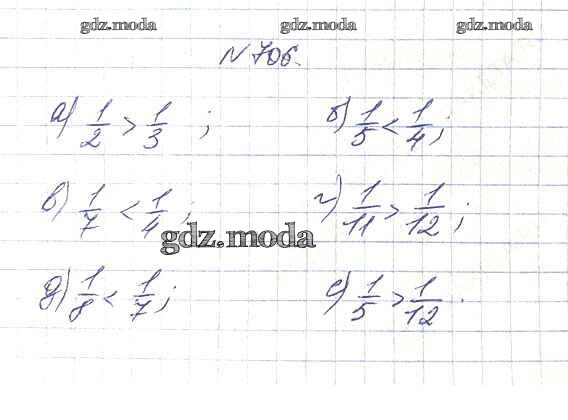 gdz.moda gdz.moda gdz.moda
N 706.
а) 1/2 > 1/3 ; б) 1/5 < 1/4 ;
в) 1/7 < 1/4 ; г) 1/11 > 1/12 ;
gdz.moda
д) 1/8 < 1/7 ; е) 1/5 > 1/12 .